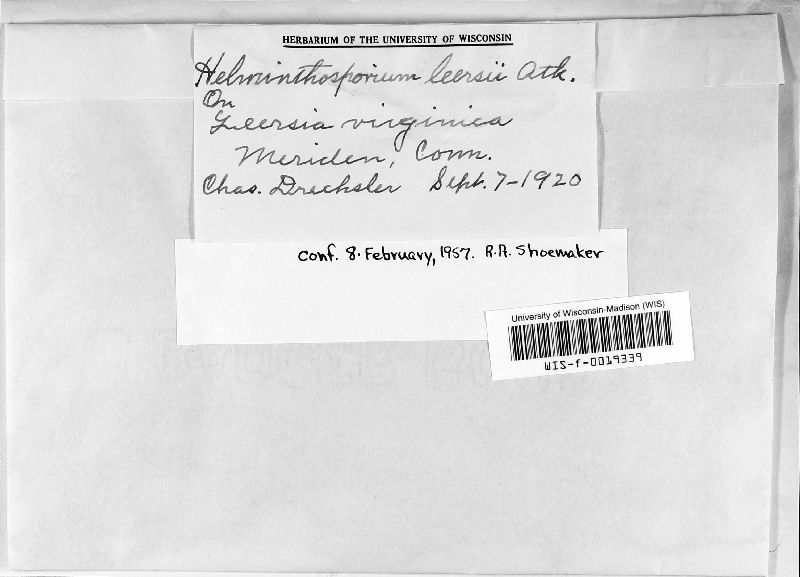 HERBARIUM OF THE UNIVERSITY OF WISCONSIN
Helminthosporium leersii Atk.
On
Leersia virginica
Meriden, Conn.
Chas. Drechsler Sept. 7-1920
Conf. 8. February, 1957. R.A. Shoemaker
University of Wisconsin-Madison (WIS)
WIS-f-0019339